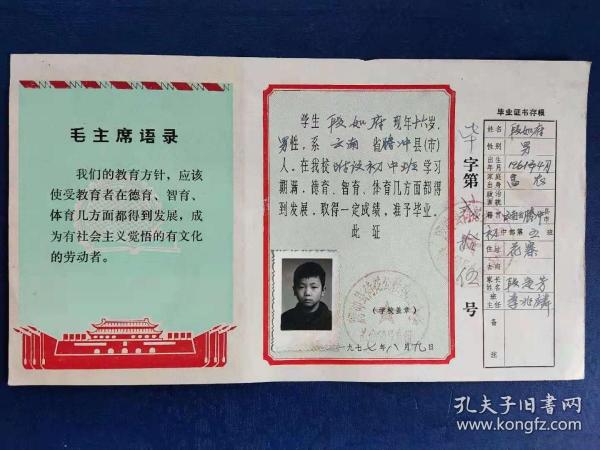 毛主席语录
我们的教育方针，应该
使受教育者在德育、智育、
体育几方面都得到发展，成
为有社会主义觉悟的有文化
的劳动者。
学生 段如府 现年十六岁，
男性，系 云南 省腾冲县(市)
人，在我校 初中 班学习
期满，德育、智育、体育几方面都得
到发展，取得一定成绩，准予毕业。
此证
(学校盖章)
一九七七年八月九日
毕字第 拾伍号
毕业证书存根
姓名 段如府
性别 男
出生年月 1961年4月
家庭出身 富农
政治面貌
籍贯 云南省腾冲县市
初中部第五班
住址
去向
家长姓名 段 芳
班主任 李兆麟
备注
孔夫子旧书网
www.kongfz.com